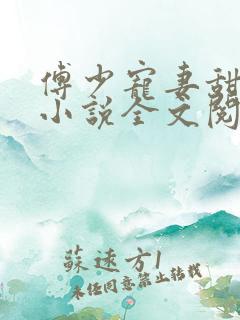 傅少寵妻甜
小說全文閱
蘇遠方1
未經同意禁止轉載